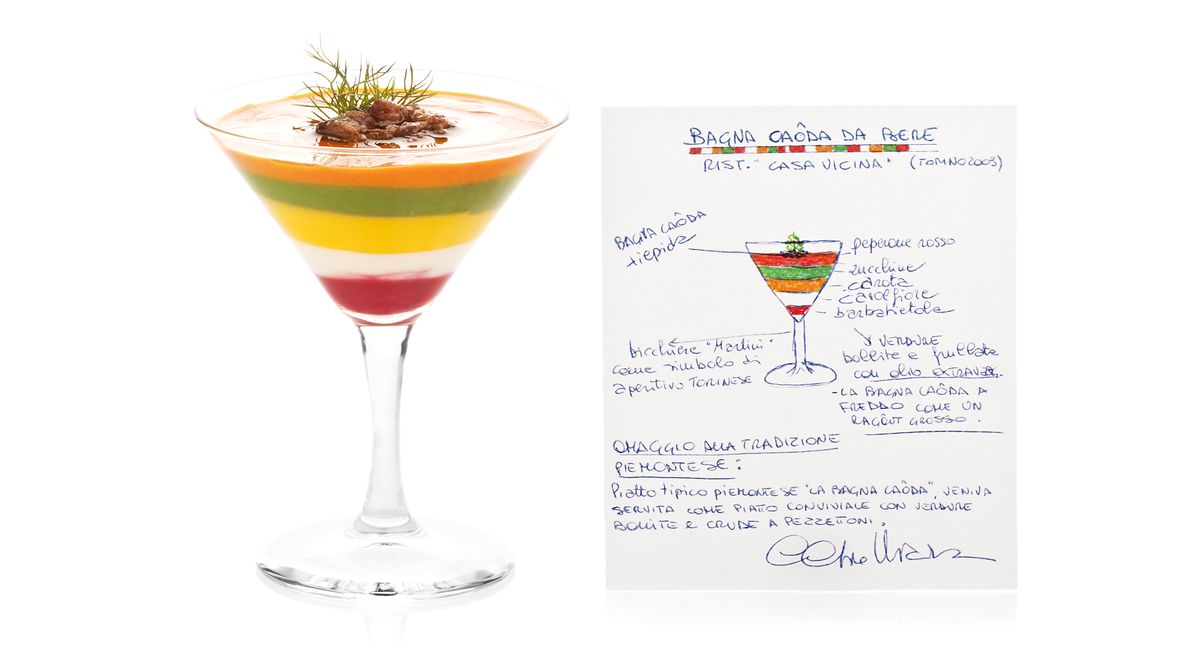 BAGNA CAÔDA DA BERE
RIST. "CASA VICINA" (TORINO 2003)
BAGNA CAÔDA
tiepida
peperone rosso
zucchine
carota
cavolfiore
barbabietola
bicchiere "Martini"
come simbolo di
aperitivo TORINESE
VERDURE
bollite e frullate
con olio EXTRAVERG.
- LA BAGNA CAÔDA A
FREDDO COME UN
RAGÔUT GROSSO.
OMAGGIO ALLA TRADIZIONE
PIEMONTESE:
Piatto tipico PIEMONTESE "LA BAGNA CAÔDA", VENIVA
SERVITA COME PIATTO CONVIVIALE CON VERDURE
BOLLITE E CRUDE A PEZZETTONI.